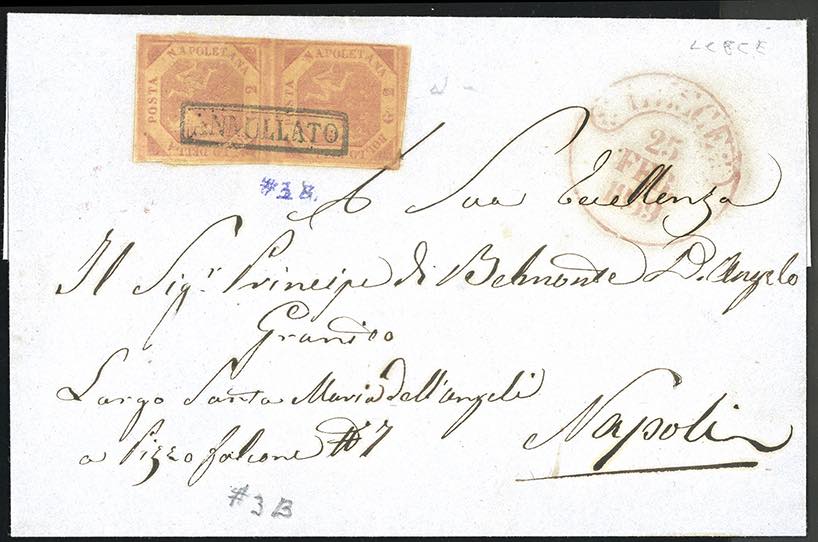 LECCE
POSTA NAPOLETANA G 2 BOLLO DELLA
POSTA NAPOLETANA G 2 BOLLO DELLA
ANNULLATO
LECCE
25
FEB
1859
#3B.
A Sua Eccellenza
Il Sigr. Principe di Belmonte D. Angelo
Granito
Largo Santa Maria dell'angeli
a Pizzo falcone #7
Napoli
#3B